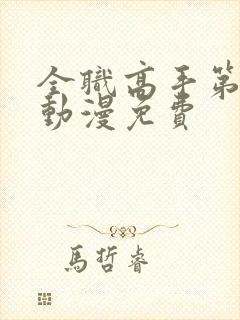 全職高手第
動漫免費
馬哲睿